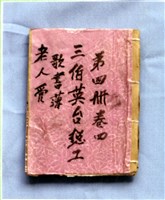 第四册卷四
三伯英台总工
歌書藻
老人房